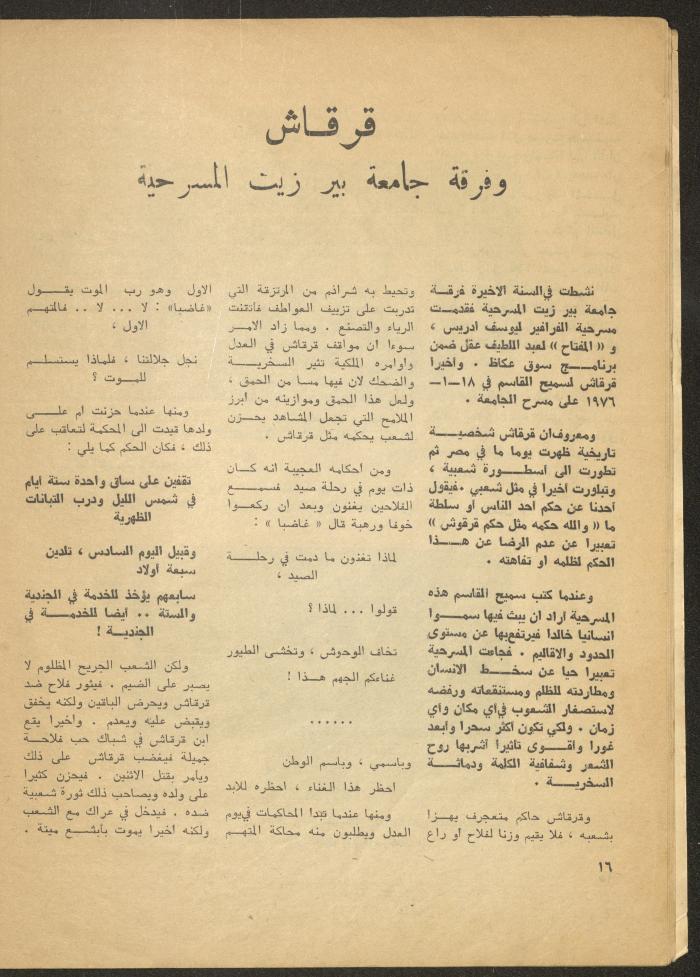 قرقاش
وفرقة جامعة بير زيت المسرحية
نشطت في السنة الاخيرة فرقة
جامعة بير زيت المسرحية فقدمت
مسرحية الفرافير ليوسف ادريس ،
و « المفتاح » لعبد اللطيف عقل ضمن
برنامج سوق عكاظ . واخيرا
قرقاش لسميح القاسم في ١٨—١—
١٩٧٦ على مسرح الجامعة .
ومعروف ان قرقاش شخصية
تاريخية ظهرت يوما ما في مصر ثم
تطورت الى اسطورة شعبية ،
وتبلورت اخيرا في مثل شعبي . فيقول
أحدنا عن حكم احد الناس او سلطة
ما « والله حكمه مثل حكم قرقوش »
تعبيرا عن عدم الرضا عن هذا
الحكم لظلمه او تفاهته .
وعندما كتب سميح القاسم هذه
المسرحية أراد ان يبث فيها سموا
انسانيا خالدا فيرتفع بها عن مستوى
الحدود والاقاليم . فجاءت المسرحية
تعبيرا حيا عن سخط الانسان
ومطاردته للظلم ومستنقعاته ورفضه
لاستصغار الشعوب في اي مكان واي
زمان . ولكي تكون أكثر سحرا وابعد
غورا وأقوى تأثيرا أشربها روح
الشعر وشفافية الكلمة ودماثة
السخرية .
وقرقاش حاكم متعجرف يهزا
بشعبه ، فلا يقيم وزنا لفلاح او راع
وتحيط به شراذم من المرتزقة التي
تدربت على تزييف العواطف فأتقنت
الرياء والتصنع . ومما زاد الامر
سوءا ان مواقف قرقاش في العدل
واوامره الملكية تثير السخرية
والضحك لان فيها مسا من الحمق ،
ولعل هذا الحمق وموازينه من ابرز
الملامح التي تجعل المشاهد يحزن
لشعب يحكمه مثل قرقاش .
ومن أحكامه العجيبة انه كان
ذات يوم في رحلة صيد فسمع
الفلاحين يغنون وبعد ان ركعوا
خوفا ورهبة قال « غاضبا » :
لماذا تغنون ما دمت في رحلة
الصيد ،
قولوا ... لماذا ؟
تخاف الوحوش ، وتخشى الطيور
غناءكم الجهم هذا !
......
وباسمي ، وباسم الوطن
احظر هذا الغناء ، احظره للابد
ومنها عندما تبدأ المحاكمات في يوم
العدل ويطلبون منه محاكة المتهم
الاول وهو رب الموت يقول
«غاضبا» : لا ... لا .. فالمتهم
الاول ،
نجل جلالتنا ، فلماذا يستسلم
للموت ؟
ومنها عندما حزنت ام على
ولدها قيدت الى المحكمة لتعاقب على
ذلك ، فكان الحكم كما يلي :
تقفين على ساق واحدة ستة ايام
في شمس الليل ودرب التبانات
الظهرية
وقبيل اليوم السادس ، تلدين
سبعة أولاد
سابعهم يؤخذ للخدمة في الجندية
والستة .. أيضا للخدمة في
الجندية !
ولكن الشعب الجريح المظلوم لا
يصبر على الضيم . فيثور فلاح ضد
قرقاش ويحرض الباقين ولكنه يخفق
ويقبض عليه ويعدم . واخيرا يقع
ابن قرقاش في شباك حب فلاحة
جميلة فيغضب قرقاش على ذلك
ويأمر بقتل الاثنين . فيحزن كثيرا
على ولده ويصاحب ذلك ثورة شعبية
ضده . فيدخل في عراك مع الشعب
ولكنه اخيرا يموت بأبشع ميتة .
١٦